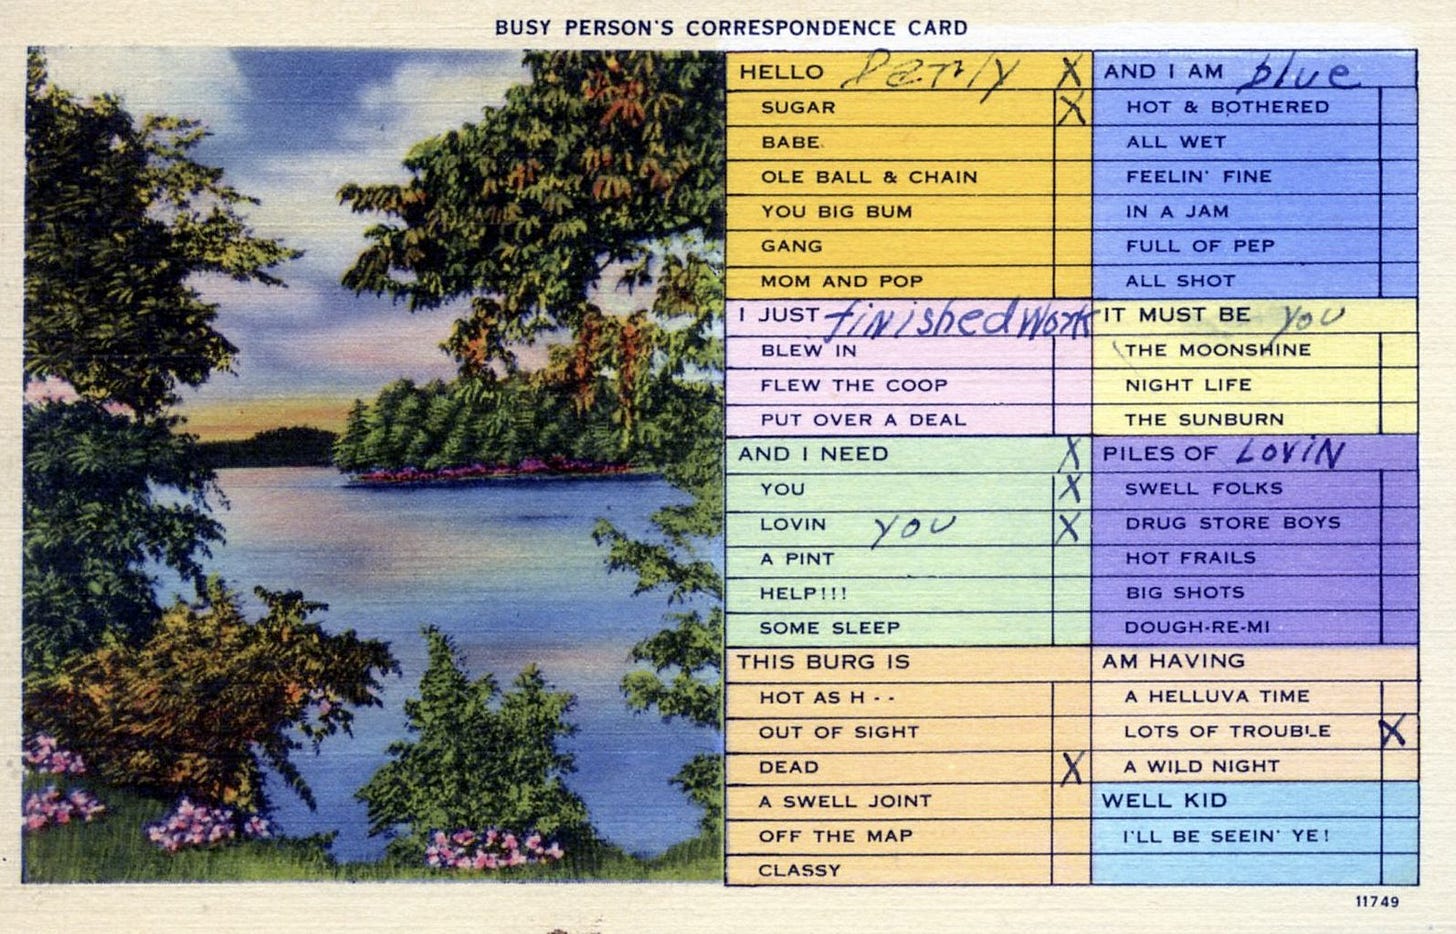 BUSY PERSON'S CORRESPONDENCE CARD
HELLO X
SUGAR X
BABE
OLE BALL & CHAIN
YOU BIG BUM
GANG
MOM AND POP
I JUST finished Work
BLEW IN
FLEW THE COOP
PUT OVER A DEAL
AND I NEED X
YOU X
LOVIN you X
A PINT
HELP!!!
SOME SLEEP
THIS BURG IS
HOT AS H--
OUT OF SIGHT
DEAD X
A SWELL JOINT
OFF THE MAP
CLASSY
AND I AM blue
HOT & BOTHERED
ALL WET
FEELIN' FINE
IN A JAM
FULL OF PEP
ALL SHOT
IT MUST BE you
THE MOONSHINE
NIGHT LIFE
THE SUNBURN
PILES OF LOVIN
SWELL FOLKS
DRUG STORE BOYS
HOT FRAILS
BIG SHOTS
DOUGH-RE-MI
AM HAVING
A HELLUVA TIME
LOTS OF TROUBLE X
A WILD NIGHT
WELL KID
I'LL BE SEEIN' YE!
11749